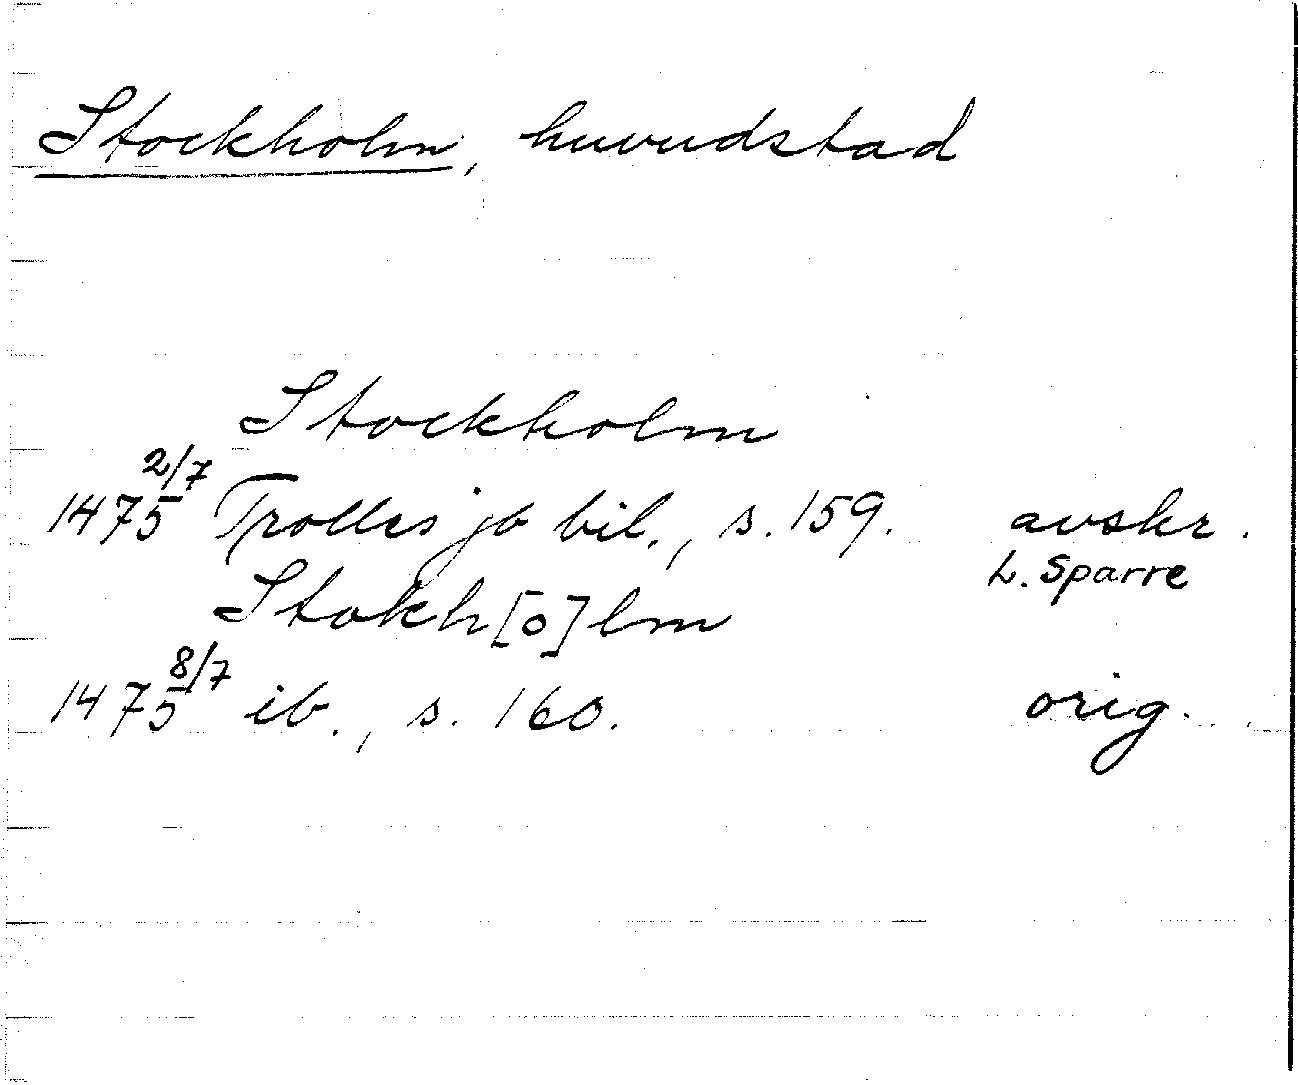 Stockholm, huvudstad
Stockholm
1475 2/7 Trolles jb bil., s. 159. avskr.
L. Sparre
Stokh[o]lm
1475 8/7 ib., s. 160. orig.